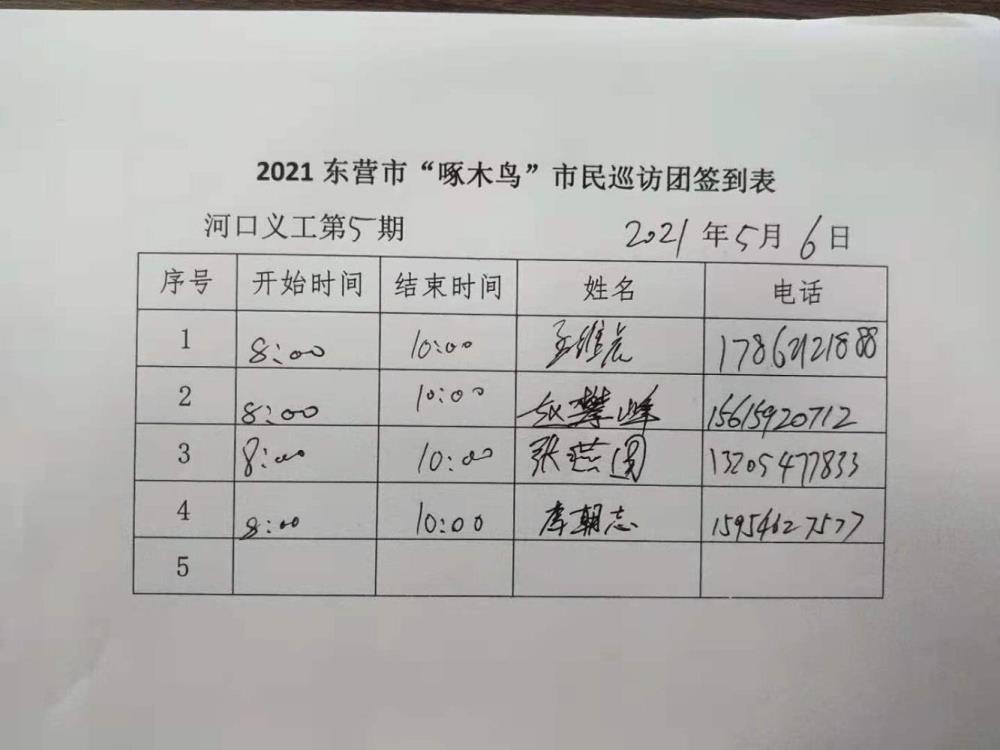 2021 东营市“啄木鸟”市民巡访团签到表
河口义工第5期 2021年5月6日
序号 开始时间 结束时间 姓名 电话
1 8:00 10:00 王维 17862121888
2 8:00 10:00 赵攀峰 15615920712
3 8:00 10:00 张燕 13205477833
4 8:00 10:00 李朝志 15954627577
5